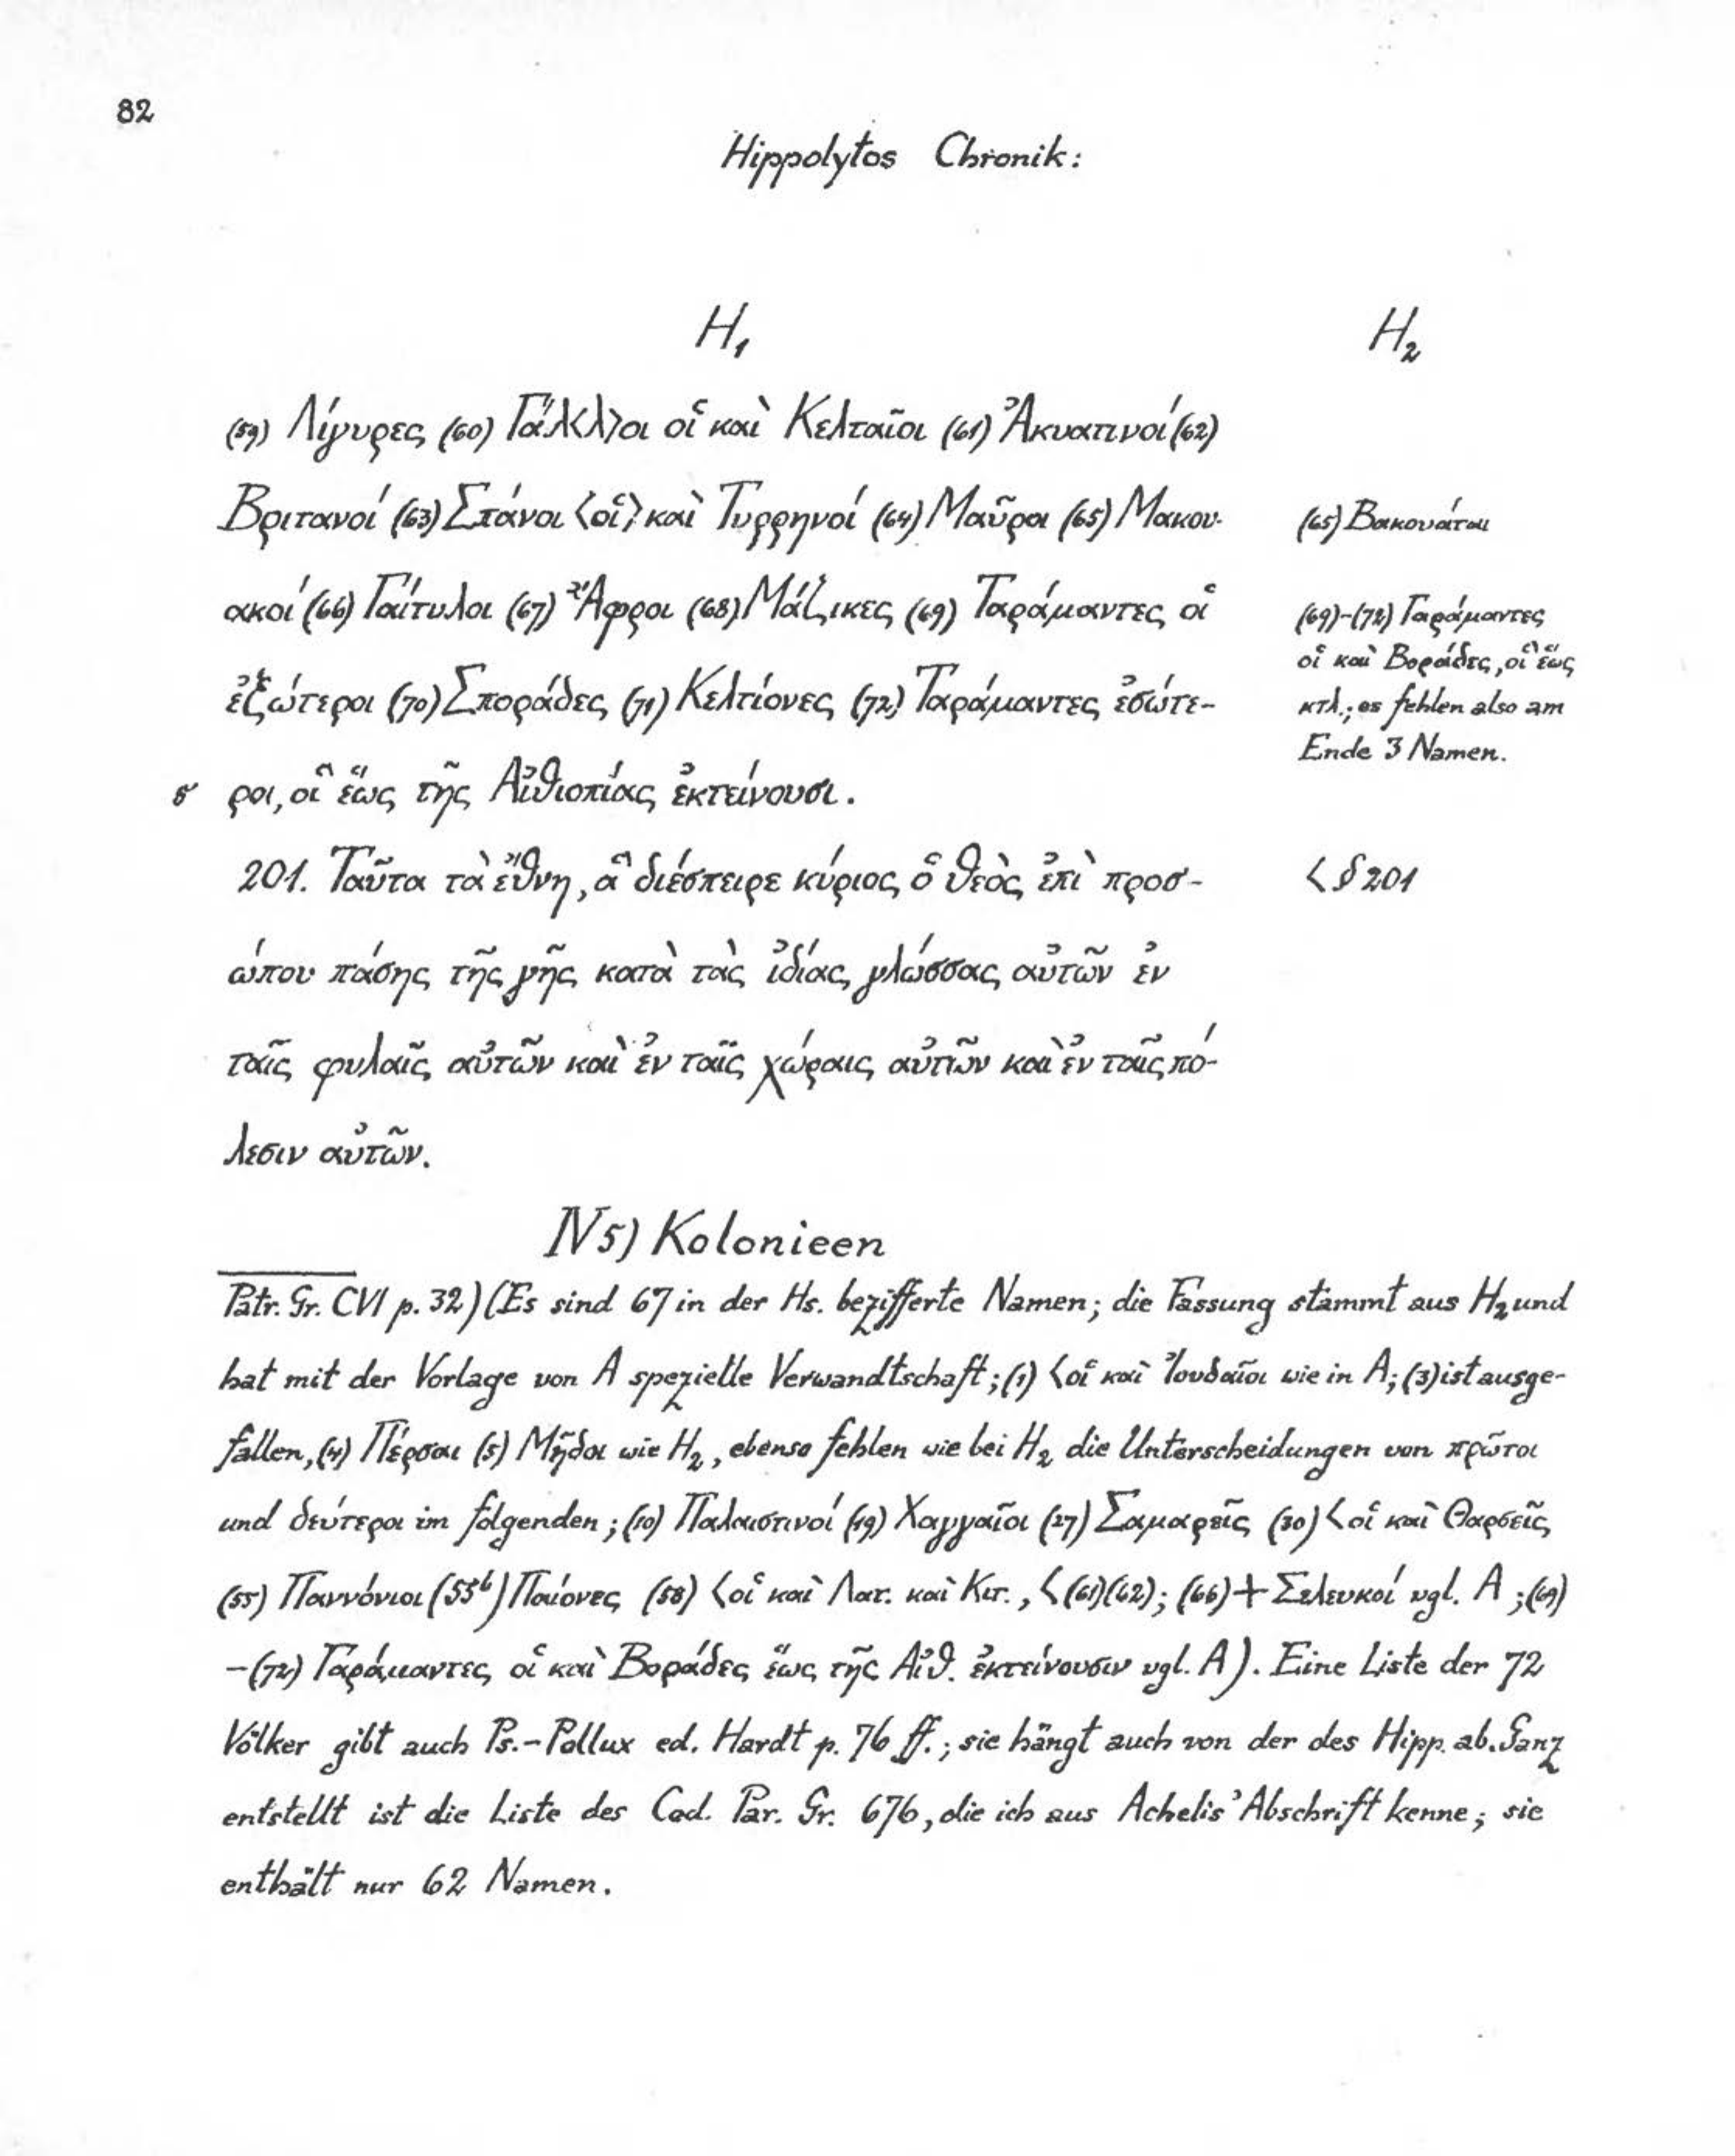 82
Hippolytos Chronik:
H₁
H₂
(59) Λίγυρες (60) Γάλ<λ>οι οἱ καὶ Κελταῖοι (61) Ἀκυατινοί (62)
Βριτανοί (63) Σπάνοι <οἱ> καὶ Τυρρηνοί (64) Μαῦροι (65) Μακου-
(65) Βακουάται
ακοί (66) Γαίτυλοι (67) Ἄφροι (68) Μάζικες (69) Ταράμαντες οἱ
(69)-(72) Γαράμαντες
οἱ καὶ Βοράδες, οἳ ἕως
ἐξώτεροι (70) Σποράδες (71) Κελτίονες (72) Ταράμαντες ἐσώτε-
κτλ.; es fehlen also am
Ende 3 Namen.
5 ροι, οἳ ἕως τῆς Αἰθιοπίας ἐκτείνουσι.
201. Ταῦτα τὰ ἔθνη, ἃ διέσπειρε κύριος ὁ θεὸς ἐπὶ προσ-
< § 201
ώπου πάσης τῆς γῆς κατὰ τὰς ἰδίας γλώσσας αὐτῶν ἐν
ταῖς φυλαῖς αὐτῶν καὶ ἐν ταῖς χώραις αὐτῶν καὶ ἐν ταῖς πό-
λεσιν αὐτῶν.
IV 5) Kolonieen
Patr. Gr. CVI p. 32) (Es sind 67 in der Hs. bezifferte Namen; die Fassung stammt aus H₂ und
hat mit der Vorlage von A spezielle Verwandtschaft; (1) <οἱ καὶ Ἰουδαῖοι wie in A; (3) ist ausge-
fallen, (4) Πέρσαι (5) Μῆδοι wie H₂, ebenso fehlen wie bei H₂ die Unterscheidungen von πρῶτοι
und δεύτεροι im folgenden; (10) Παλαιστινοί (19) Χαγγαῖοι (27) Σαμαρεῖς (30) <οἱ καὶ Θαρσεῖς
(55) Παννόνιοι (55ᵇ) Παίονες (58) <οἱ καὶ Λατ. καὶ Κιτ., < (61)(62); (66) + Σελευκοί vgl. A; (69)
-(72) Γαράμαντες οἱ καὶ Βοράδες ἕως τῆς Αἰθ. ἐκτείνουσιν vgl. A). Eine Liste der 72
Völker gibt auch Ps.-Pollux ed. Hardt p. 76 ff.; sie hängt auch von der des Hipp. ab. Ganz
entstellt ist die Liste des Cod. Par. Gr. 676, die ich aus Achelis' Abschrift kenne; sie
enthält nur 62 Namen.